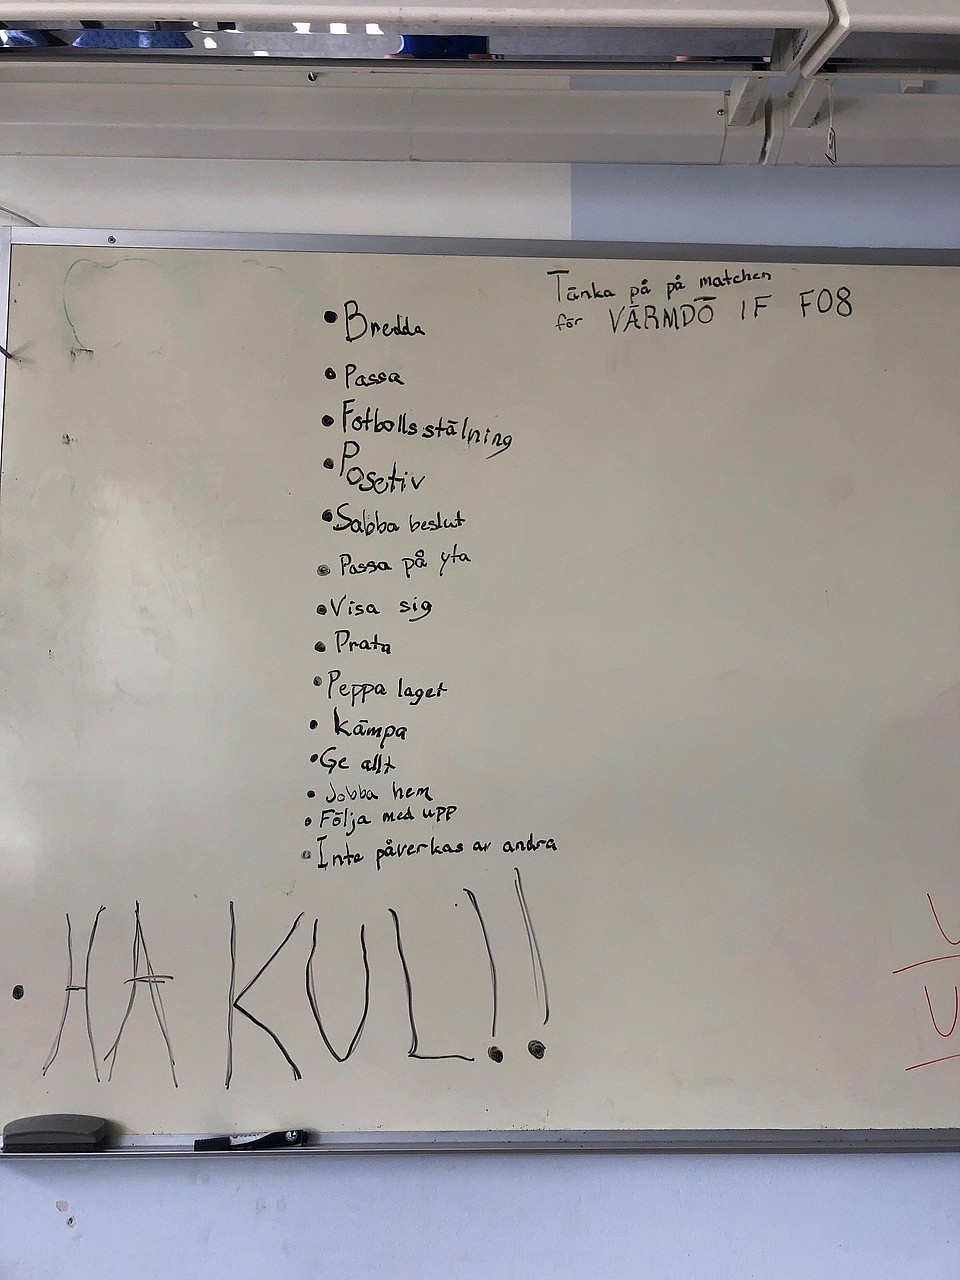 Tänka på på matchen
för VÄRMDÖ IF F08
• Bredda
• Passa
• Fotbollsstälning
• Posetiv
• Sabba beslut
• Passa på yta
• Visa sig
• Prata
• Peppa laget
• Kämpa
• Ge allt
• Jobba hem
• Följa med upp
• Inte påverkas av andra
• HA KUL!!